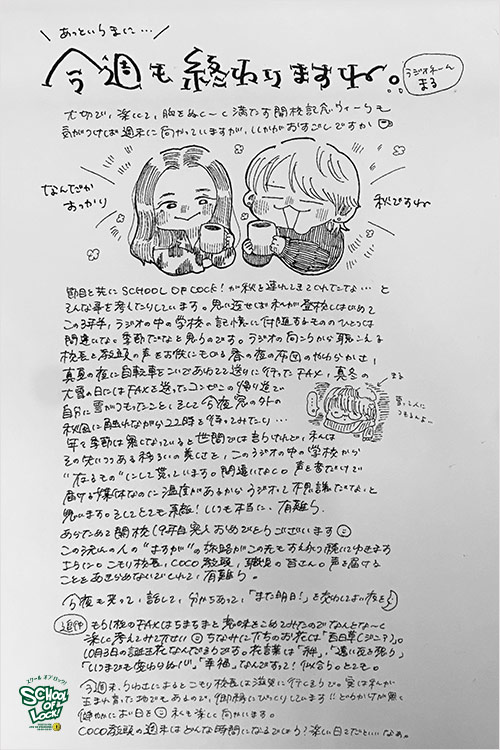 あっというまに…
今週も終わりますね。
ラジオネーム
まる
大切で、楽しくて、胸をぬく〜く満たす開校記念ウィークも
気がつけば週末に向かっていますが、いかがおすごしですか
なんだか
すっかり
秋ですね
節目と共にSCHOOL OF LOCK!が秋を連れてきてくれたな…と
そんな事を考えたりしています。思い返せば私が登校しはじめて
この3年半、ラジオの中の学校の記憶に付随するもののひとつは
間違いなく季節だなと思うのです。ラジオの向こうから聴こえる
校長と教頭の声をお供にもぐる春の夜の布団のやわらかさ、
真夏の夜に自転車をこいであわてて送りに行ったFAX、真冬の
大雪の日にはFAXを送ったコンビニの帰り道で
自分に雪がつもったこと、そして今夜窓の外の
秋風に触れながら22時を待ってみたり…
まる
年々季節は無くなっていると世間では言うけれど、私は
その先につのる移ろいの美しさを、このラジオの中の学校から
"在るもの"にして貰っています。間違いなく。声を音だけで
届ける媒体なのに温度があるからラジオって不思議だな、と
思います。そしてとても素敵!いつも本当に、有難う。
あらためて開校19年目突入おめでとうございます
この先ひとりの人の"よすが"の旅路がこの先もすんなり穏にゆきます
ように。こもり校長、COCO教頭、職員の皆さん。声を届ける
ことをあきらめないでくれて、有難う。
今夜も笑って、話して、分かちあって、「また明日!」を交わしましょう
追伸
もう1枚のFAXはちまちまと意味をこめてみたのでなんとな〜く
楽しく考えてみて下さい ちなみに左下のお花は「百日草(ジニア)。
10月3日の誕生花なんだそうです。花言葉は「絆」、「遠い友を想う」
「いつまでも変わらぬ心」、「幸福」なんですって!似合う。とても。
今週末、うわさによるとこもり校長は滋賀に行くそうで。実は私が
生まれ育った町でもあるので、御縁にびっくりしています!!どうか行けが無く
健やかによい日を 私も楽しく向かいます。
COCO教頭の週末はどんな時間になるでしょう?楽しい日々だと…いいなあ。
スクール オブ ロック!
SCHOOL
OF
LOCK!